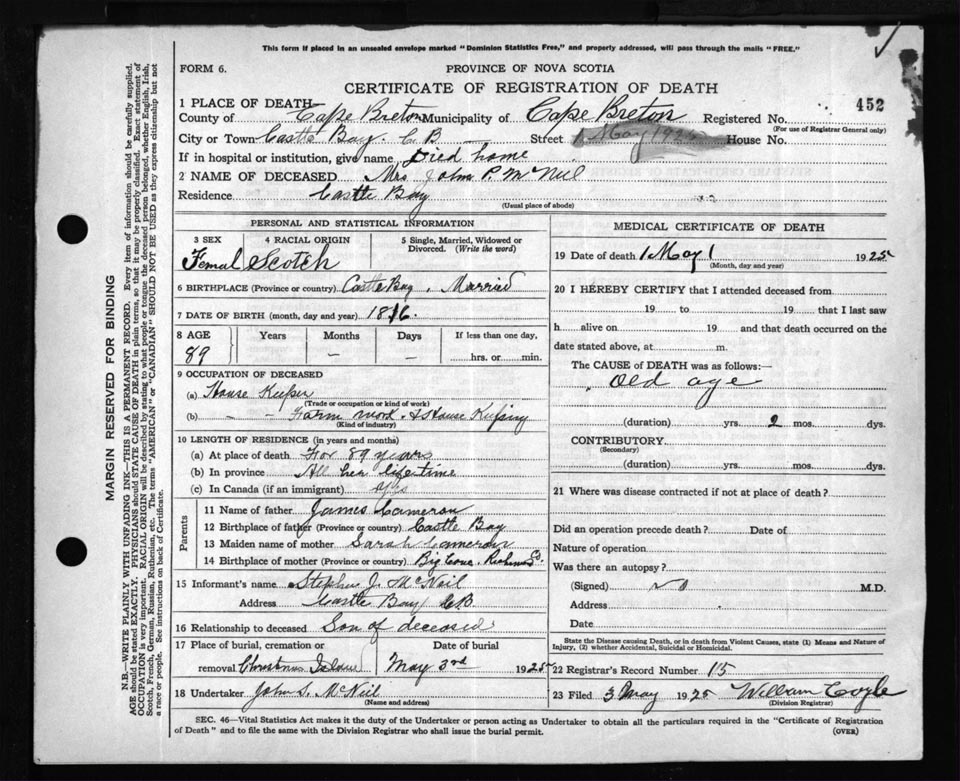 This form if placed in an unsealed envelope marked "Dominion Statistics Free," and properly addressed, will pass through the mails "FREE."
FORM 6.
PROVINCE OF NOVA SCOTIA
CERTIFICATE OF REGISTRATION OF DEATH
452
1 PLACE OF DEATH
County of Cape Breton Municipality of Cape Breton Registered No.
(For use of Registrar General only)
City or Town Castle Bay. C B Street 1 May 1925 House No.
If in hospital or institution, give name Died home
2 NAME OF DECEASED Mrs John P. McNeil
Residence Castle Bay
(Usual place of abode)
PERSONAL AND STATISTICAL INFORMATION
3 SEX Femal
4 RACIAL ORIGIN Scotch
5 Single, Married, Widowed or Divorced. (Write the word)
6 BIRTHPLACE (Province or country) Castle Bay. Married
7 DATE OF BIRTH (month, day and year) 1816.
8 AGE Years Months Days If less than one day,
89 — — hrs. or min.
9 OCCUPATION OF DECEASED
(a) House Keeper
(Trade or occupation or kind of work)
(b) - - Farm work. & House Keeping
(Kind of industry)
10 LENGTH OF RESIDENCE (in years and months)
(a) At place of death For 89 years
(b) In province All her lifetime
(c) In Canada (if an immigrant)
Parents
11 Name of father James Cameron
12 Birthplace of father (Province or country) Castle Bay
13 Maiden name of mother Sarah Cameron
14 Birthplace of mother (Province or country) Big Cove. Richmond Co.
15 Informant's name Stephen J. McNeil
Address Castle Bay C.B.
16 Relationship to deceased Son of deceased
17 Place of burial, cremation or removal Christmas Island
Date of burial May 3rd 1925
18 Undertaker John S. McNeil
(Name and address)
MEDICAL CERTIFICATE OF DEATH
19 Date of death 1 May 1 1925
(Month, day and year)
20 I HEREBY CERTIFY that I attended deceased from
19 to 19 that I last saw
h alive on 19 and that death occurred on the
date stated above, at m.
The CAUSE OF DEATH was as follows:
Old age
(duration) yrs. 2 mos. dys.
CONTRIBUTORY
(Secondary)
(duration) yrs. mos. dys.
21 Where was disease contracted if not at place of death?
Did an operation precede death? Date of
Nature of operation
Was there an autopsy?
(Signed) M.D.
Address
Date
State the Disease causing Death, or in death from Violent Causes, state (1) Means and Nature of
Injury, (2) whether Accidental, Suicidal or Homicidal.
22 Registrar's Record Number 15
23 Filed 3 May 1925 William Coyle
(Division Registrar)
SEC. 46—Vital Statistics Act makes it the duty of the Undertaker or person acting as Undertaker to obtain all the particulars required in the "Certificate of Registration
of Death" and to file the same with the Division Registrar who shall issue the burial permit.
(OVER)
MARGIN RESERVED FOR BINDING
N.B.—WRITE PLAINLY WITH UNFADING INK—THIS IS A PERMANENT RECORD. Every item of information should be carefully supplied.
AGE should be stated EXACTLY. PHYSICIANS should STATE CAUSE OF DEATH in plain terms, so that it may be properly classified. Exact statement of
OCCUPATION is very important. RACIAL ORIGIN will be described by stating to what people or tongue the deceased person belonged, whether English, Irish,
Scotch, French, German, Russian, Ruthenian, etc. The terms "AMERICAN" or "CANADIAN" SHOULD NOT BE USED as they express citizenship but not
a race or people. See instructions on back of Certificate.